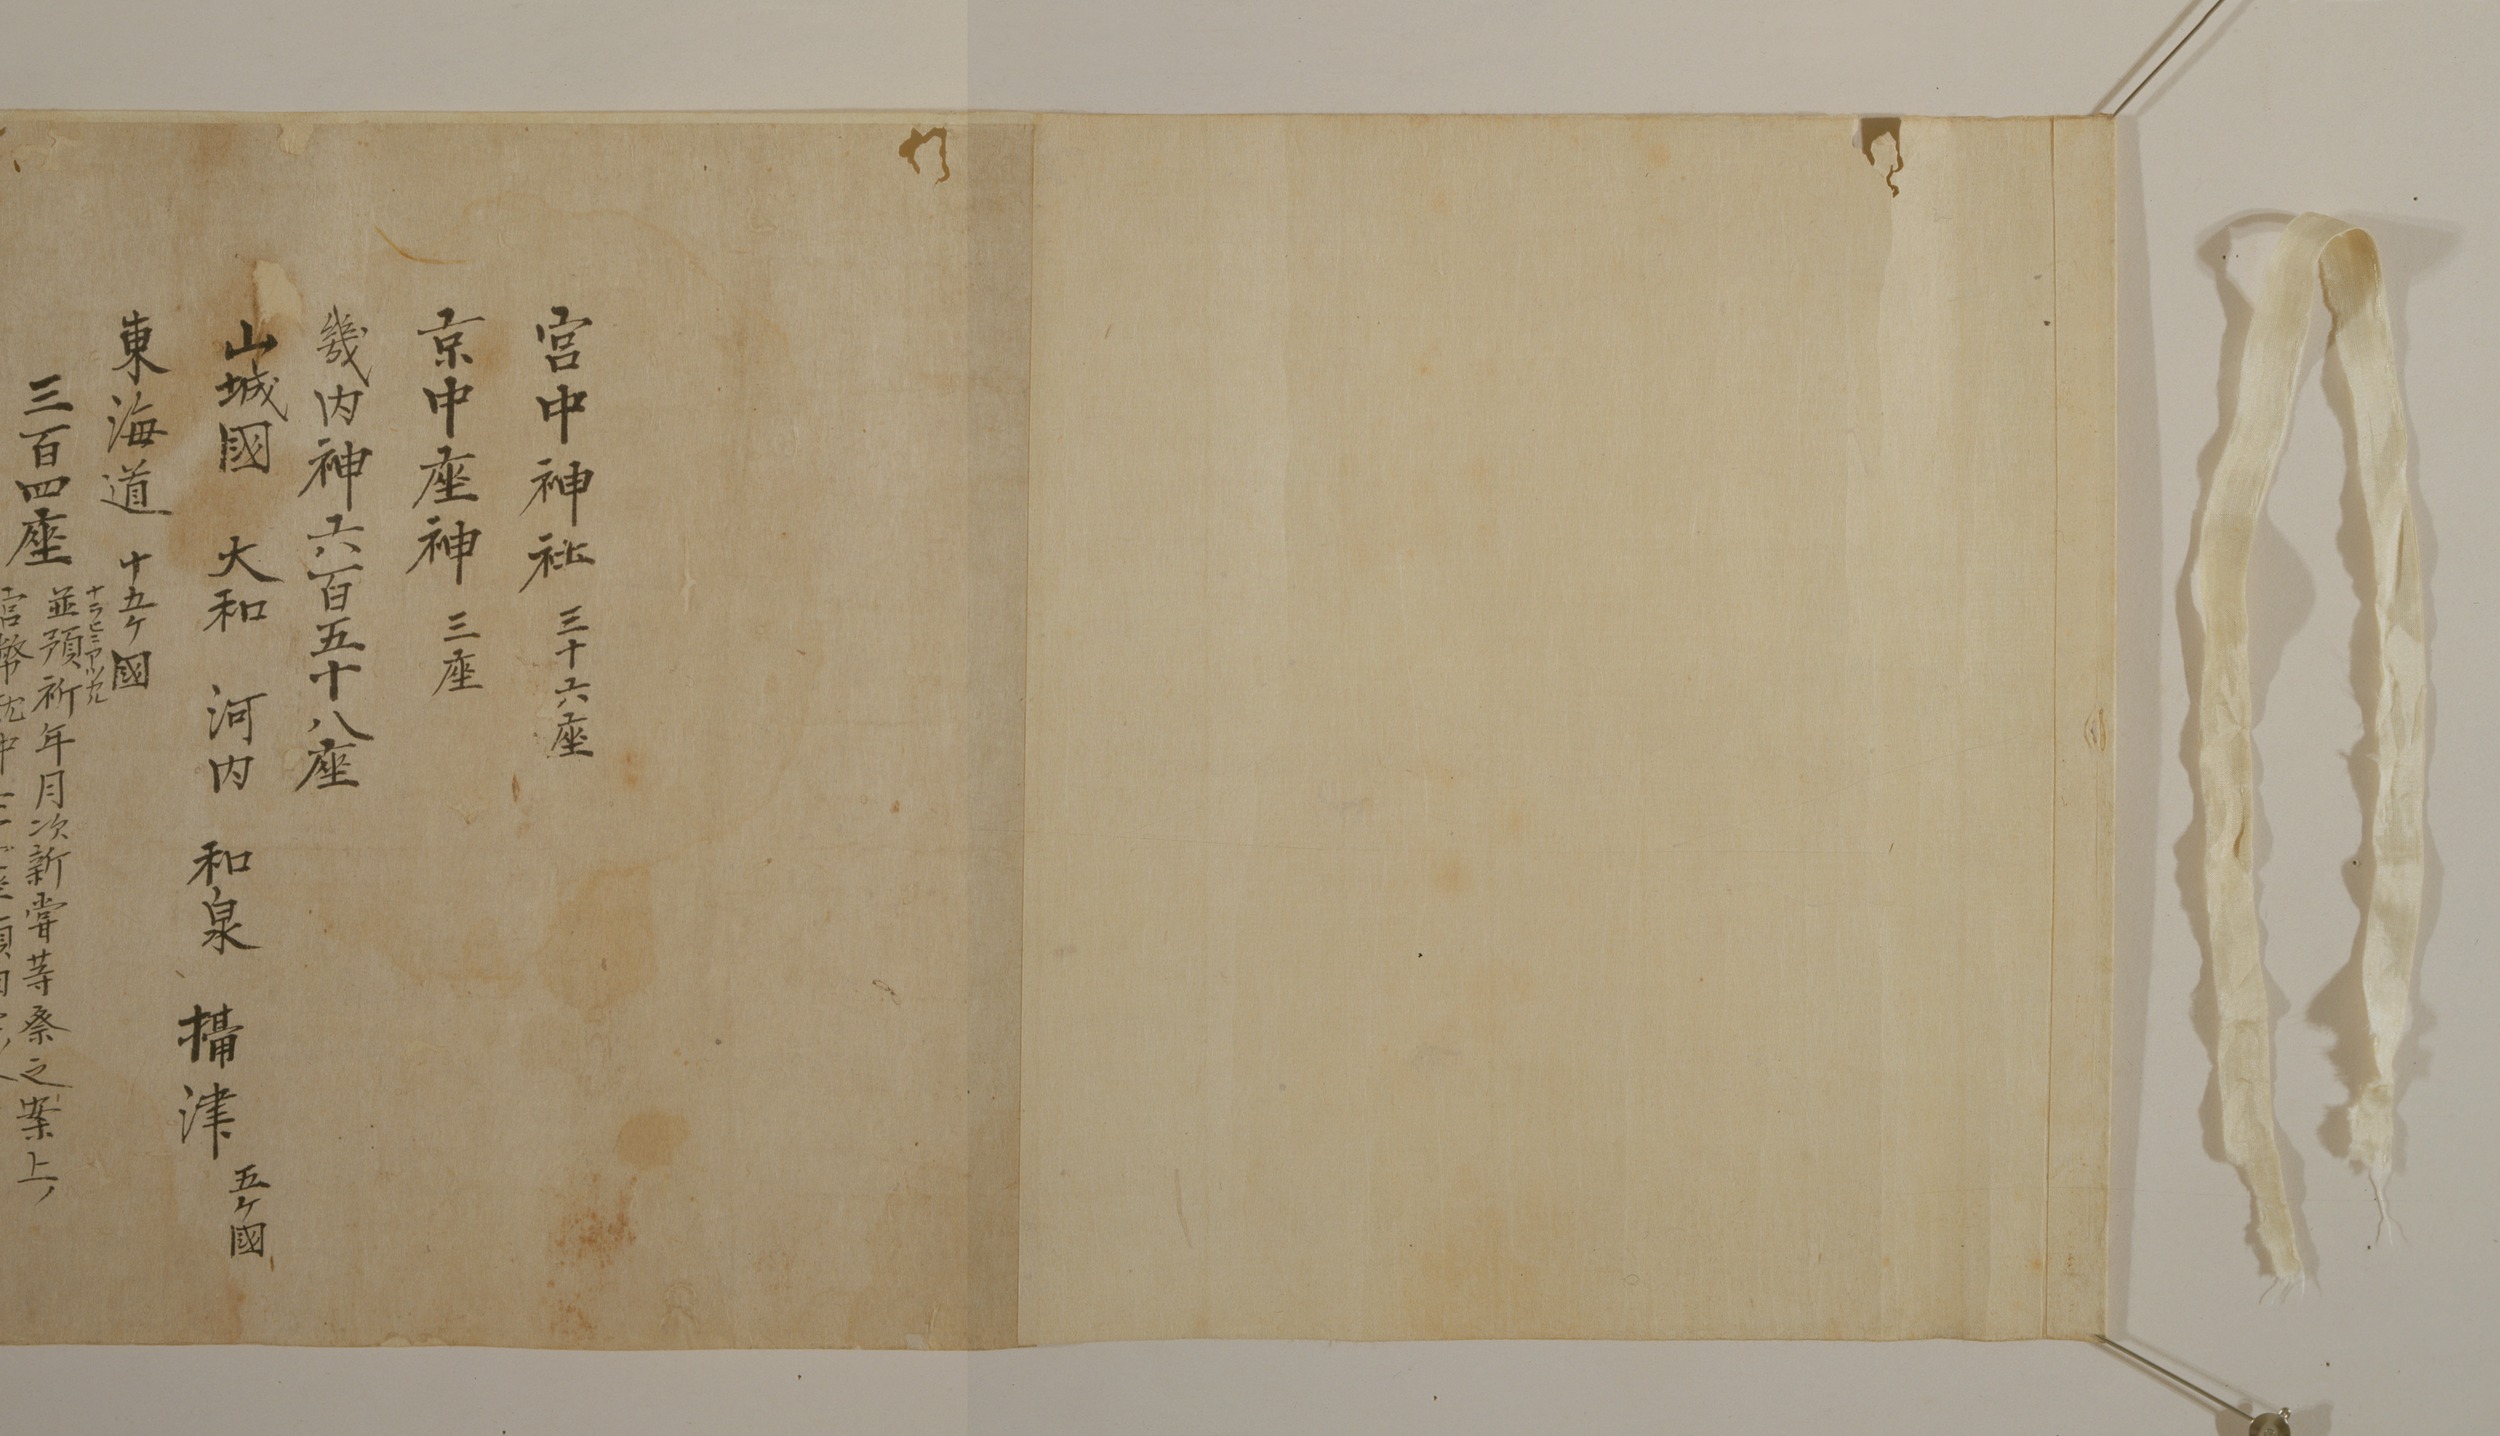 宮中神社 三十六座
京中座神 三座
畿内神六百五十八座
山城國 大和 河内 和泉 攝津 五ケ國
東海道 十五ケ國
三百四座 並預祈年月次新嘗等祭之案上
官幣